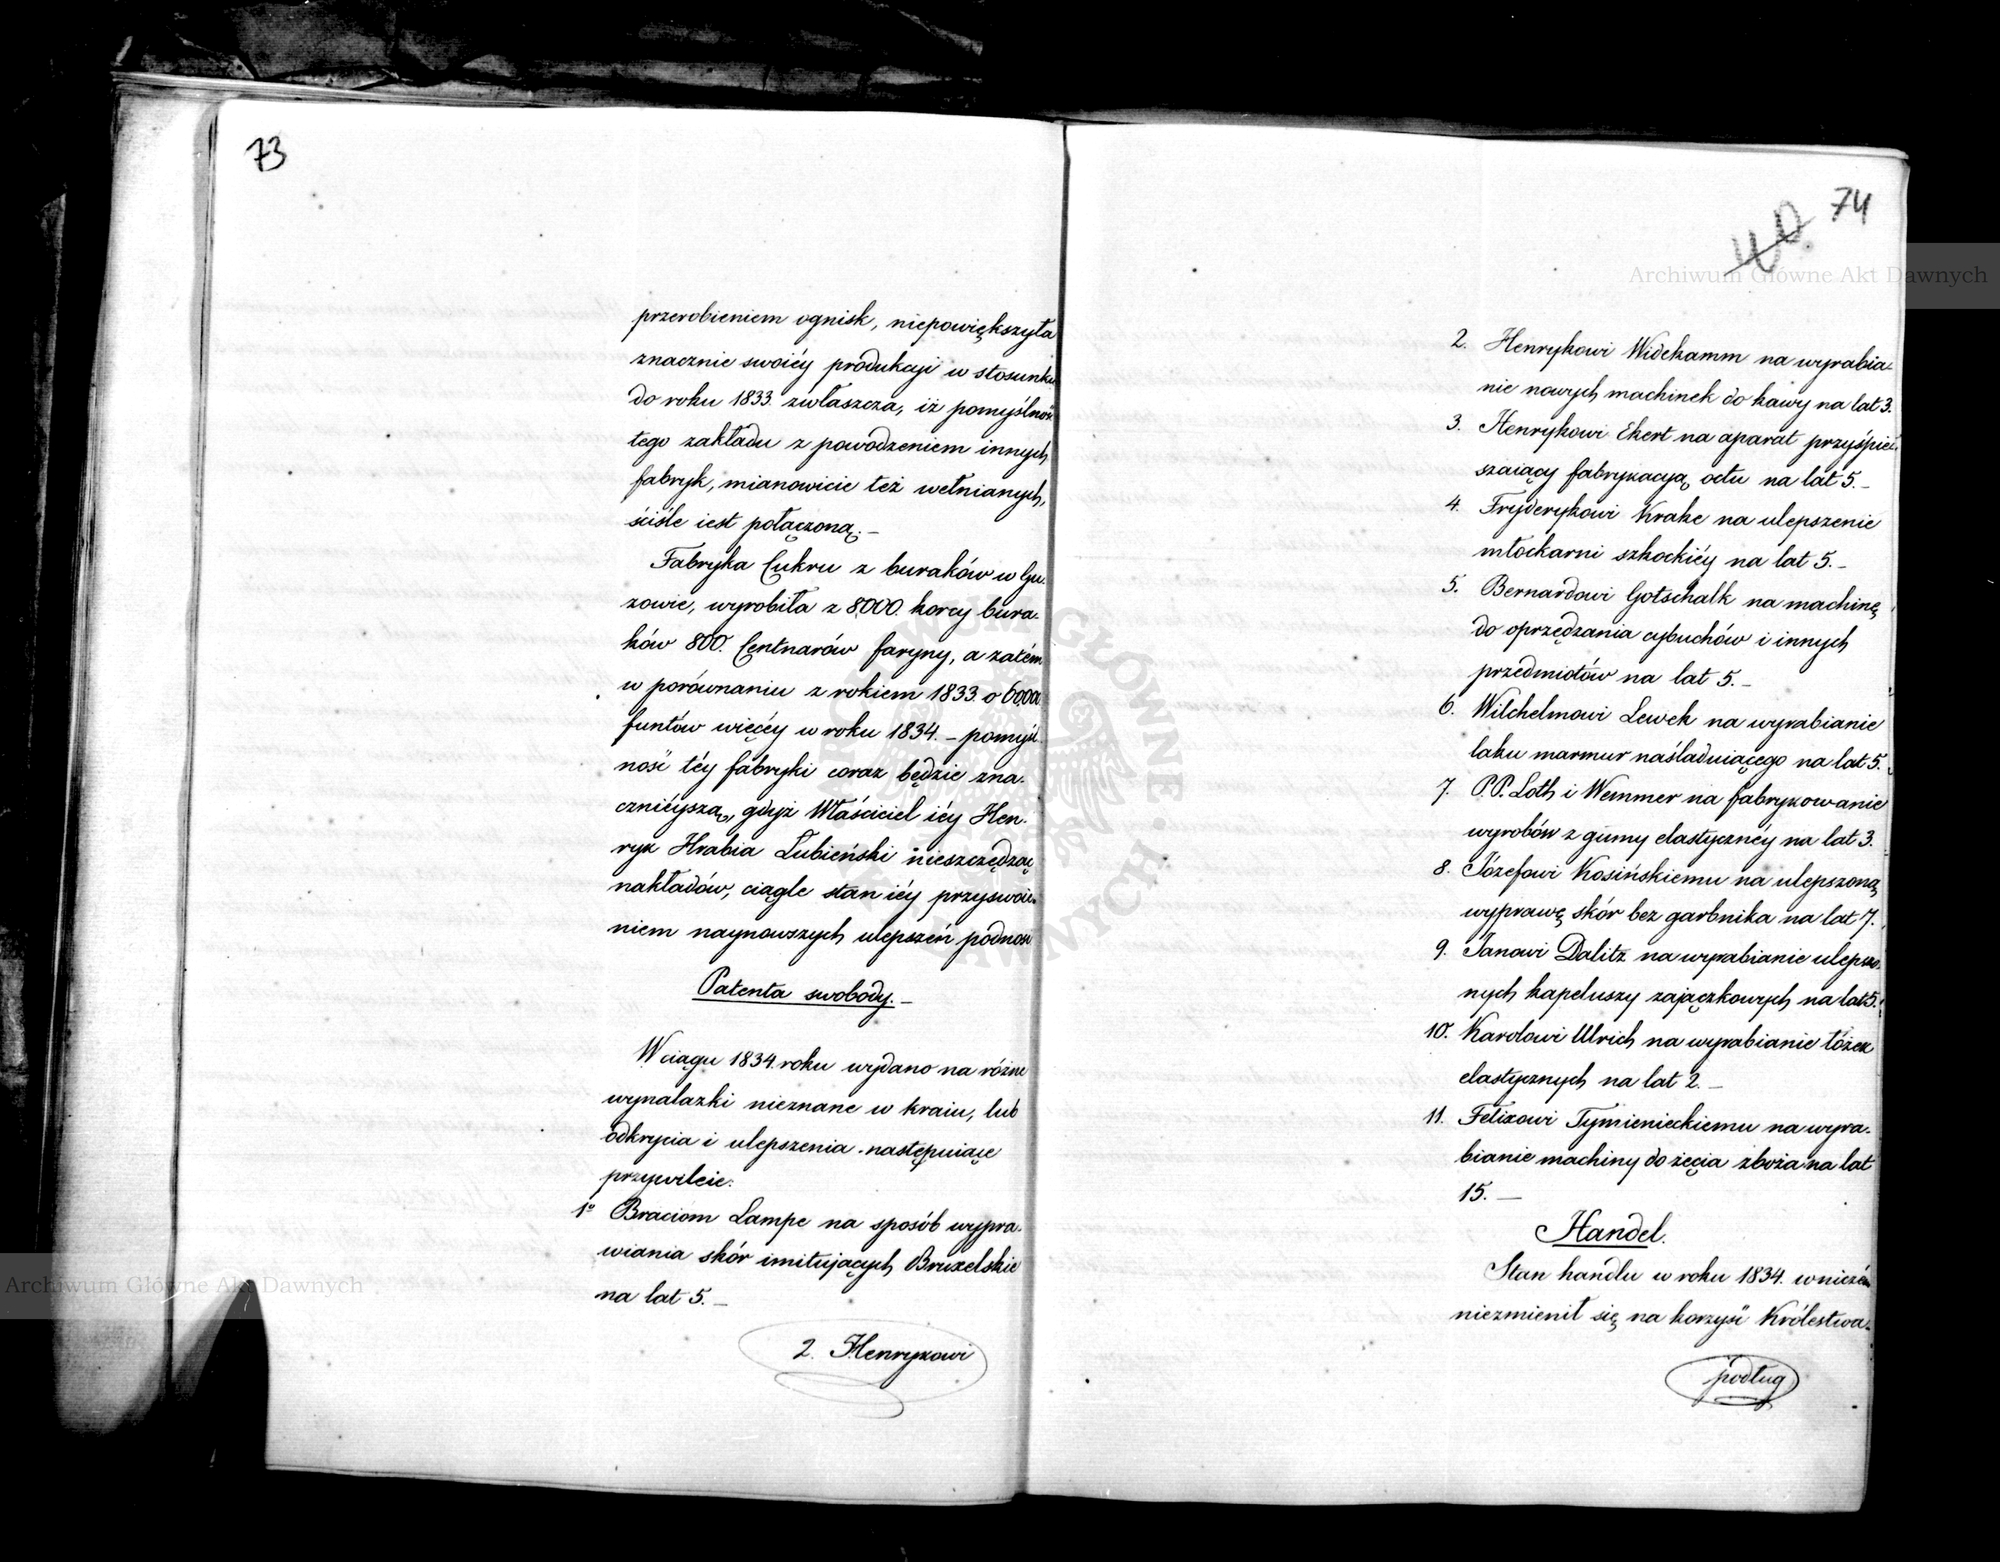 73
przerobieniem ognisk, niepowiększyła
znacznie swoiéy produkcyi w stosunku
do roku 1833. zwłaszcza, iż pomyślność
tego zakładu z powodzeniem innych
fabryk, mianowicie też wełnianych,
ściśle iest połączoną. –
Fabryka Cukru z buraków w Gu-
zowie, wyrobiła z 8000. korcy bura-
ków 800. Centnarów faryny, a zatém
w porównaniu z rokiem 1833. o
funtów więcéy w roku 1834. – pomyśl-
ność téy fabryki coraz będzie zna-
cznieyszą, gdyż Właściciel iéy Hen-
ryk Hrabia Łubieński nieszczędząc
nakładów, ciągle stan iéy przyswoie-
niem naynowszych ulepszeń podnosi
Patenta swobody. –
W ciągu 1834. roku wydano na różne
wynalazki nieznane w kraiu, lub
odkrycia i ulepszenia następuiące
przywileie:
1º Braciom Lampe na sposób wypra-
wiania skór imitujących Bruxelskie
na lat 5. –
2. Henrykowi
74
Archiwum Główne Akt Dawnych
2. Henrykowi Widekamm na wyrabia-
nie nowych machinek do kawy na lat 3.
3. Henrykowi Ekert na aparat przyśpie-
szaiący fabrykacyą octu na lat 5. –
4. Fryderykowi Krake na ulepszenie
młockarni szkockiéy na lat 5. –
5. Bernardowi Gotschalk na machinę
do oprzędzania cybuchów i innych
przedmiotów na lat 5. –
6. Wilchelmowi Lewek na wyrabianie
laku marmur naśladuiącego na lat 5.
7. P.P. Loth i Wemmer na fabrykowanie
wyrobów z gumy elastycznéy na lat 3.
8. Józefowi Kosińskiemu na ulepszoną
wyprawę skór bez garbnika na lat 7.
9. Janowi Dalitz na wyrabianie ulepszo-
nych kapeluszy zajączkowych na lat 5.
10. Karolowi Ulrich na wyrabianie łóżek
elastycznych na lat 2. –
11. Felixowi Tymienieckiemu na wyra-
bianie machiny do żęcia zboża na lat
15. –
Handel.
Stan handlu w roku 1834. wniczém
niezmienił się na korzyść Królestwa.
podług
Archiwum Główne Akt Dawnych
ARCHIWUM GŁÓWNE AKT DAWNYCH